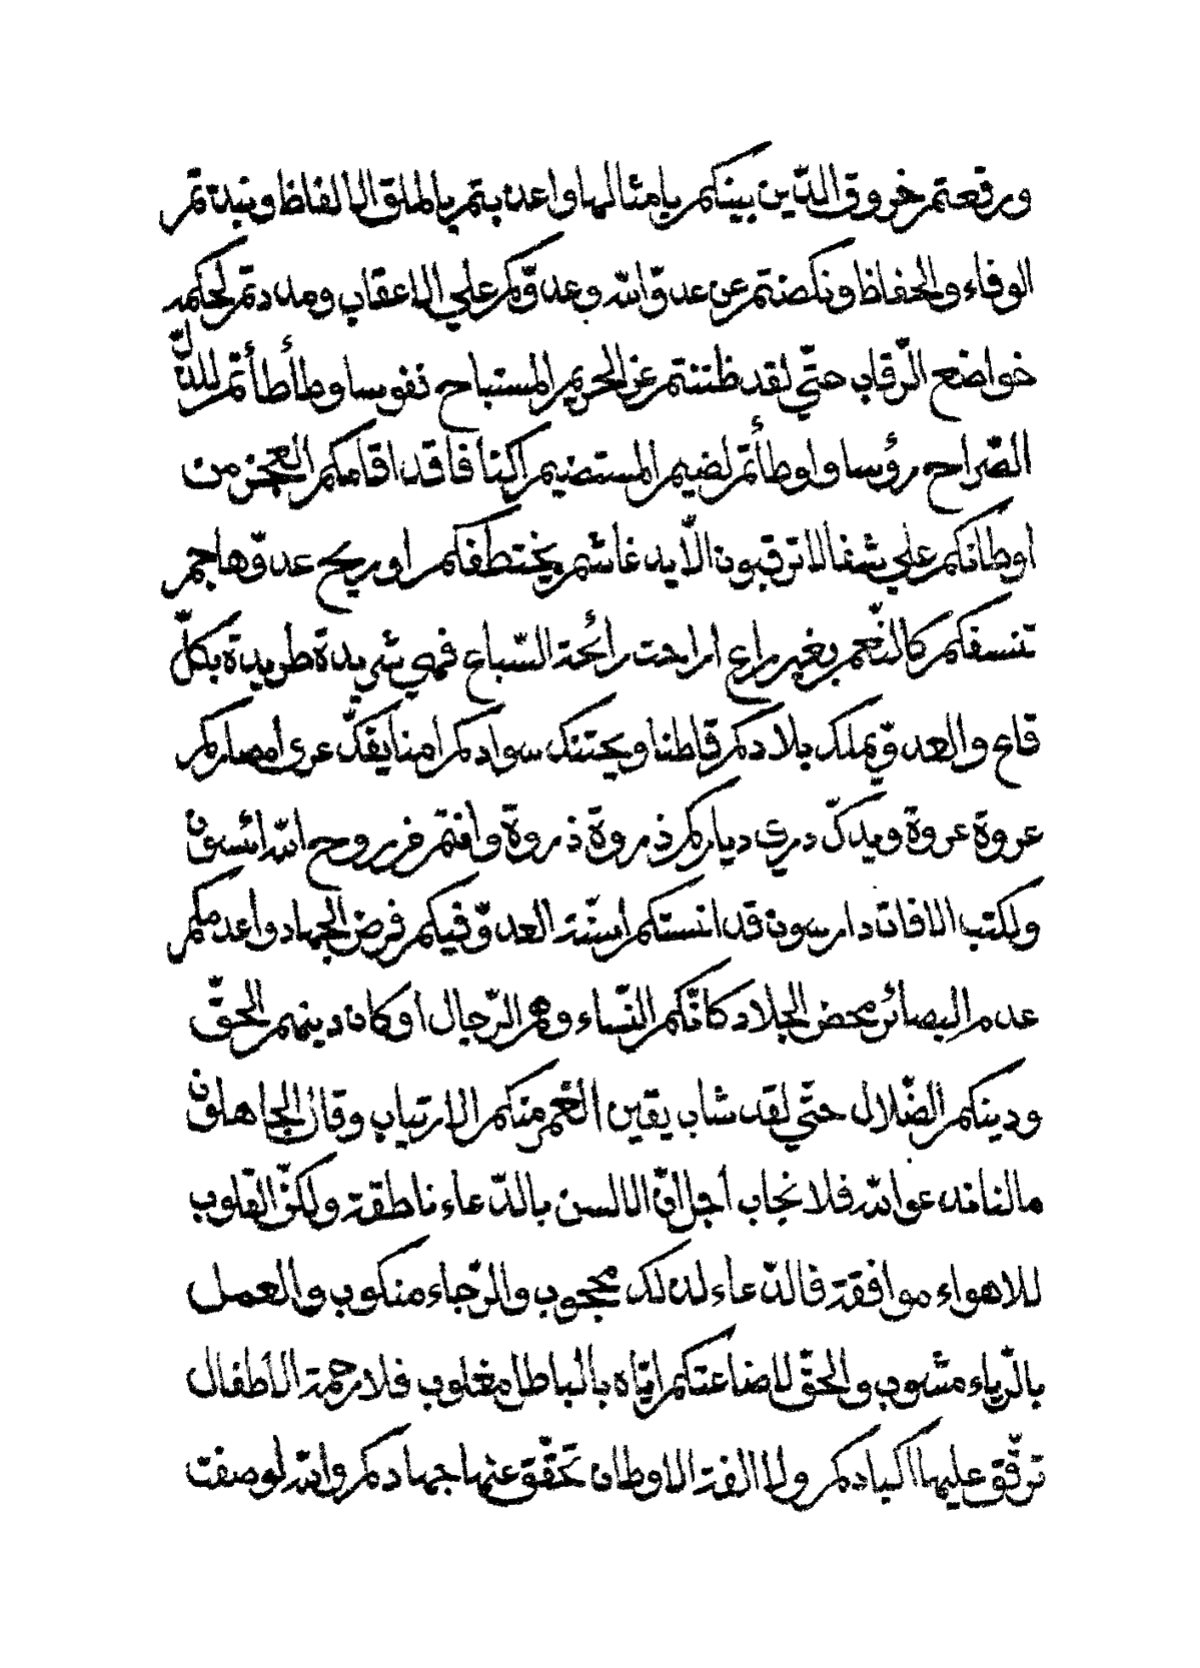 ورقعتم خروق الدّين بينكم بامثالها واعذبتم بالملق الالفاظ ونبذتم
الوفاء والحفاظ ونكصتم عن عدوّ الله وعدوّكم علي الاعقاب ومددتم لحكمه
خواضع الرّقاب حتّي لقد ظننتم عن الحريم المستباح نفوسا وطأطأتم للذّلّ
الصّراح رؤسا واوطأتم لضيم المستضيم اكتافا قد اقامكم العجز من
اوطانكم علي شفا لا ترقبون الّا يد غاشم يختطفكم او ريح عدوّ هاجم
تنسفكم كالنّعم بغير راع اراحت رائحة السّباع فهي شريدة طريدة بكلّ
قاع والعدوّ يملك بلادكم قاطنا ويحتنك سوادكم امنا يفكّ عري أمصاركم
عروة عروة ويدكّ ذري دياركم ذروة ذروة وانتم من روح الله ائسون
ولكتب الافات دارسون قد انستكم أسنّة العدوّ فيكم فرض الجهاد وأعدمكم
عدم البصائر محض الجلاد كانّكم النّساء وهم الرّجال أو كان دينهم الحقّ
ودينكم الضّلال حتّي لقد شاب يقين الغمر منكم الارتياب وقال الجاهلون
مالنا ندعو الله فلا نجاب أجل انّ الالسن بالدّعاء ناطقة ولكنّ القلوب
للاهواء موافقة فالدّعاء لذلك محجوب والرّجاء منكوب والعمل
بالرّياء مشوب والحقّ لاضاعتكم ايّاه بالباطل مغلوب فلا رحمة الاطفال
ترقّق عليها اكبادكم ولا الفة الاوطان تحقّق عنها جهادكم والله لو صفت